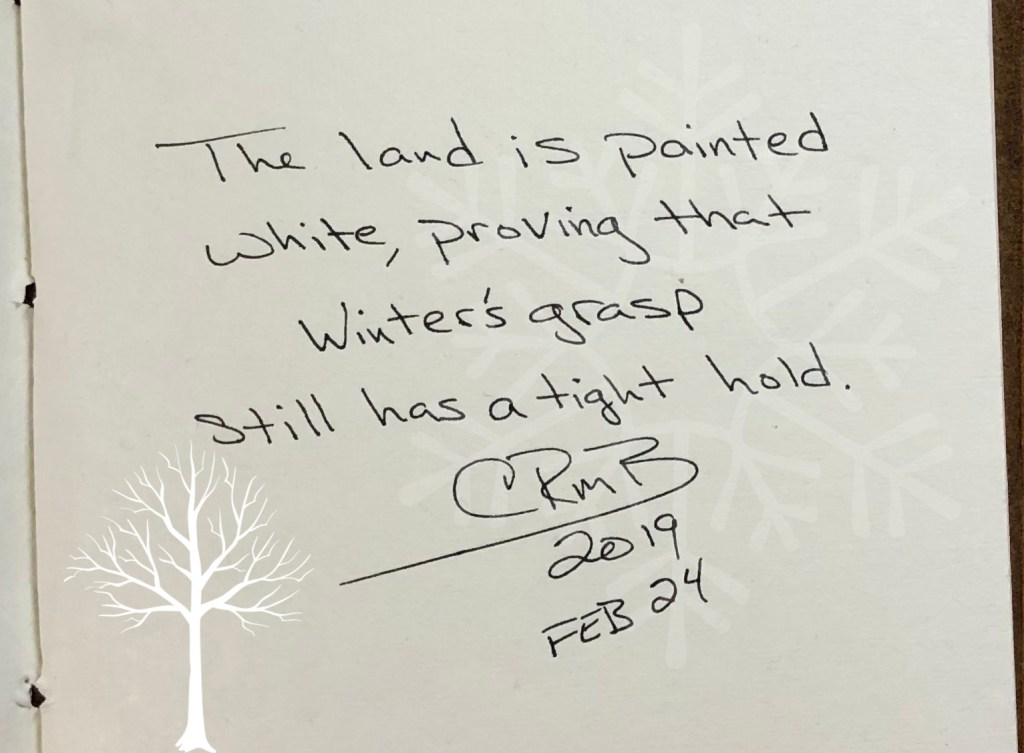 The land is painted
white, proving that
Winter's grasp
Still has a tight hold.
CRmB
2019
FEB 24